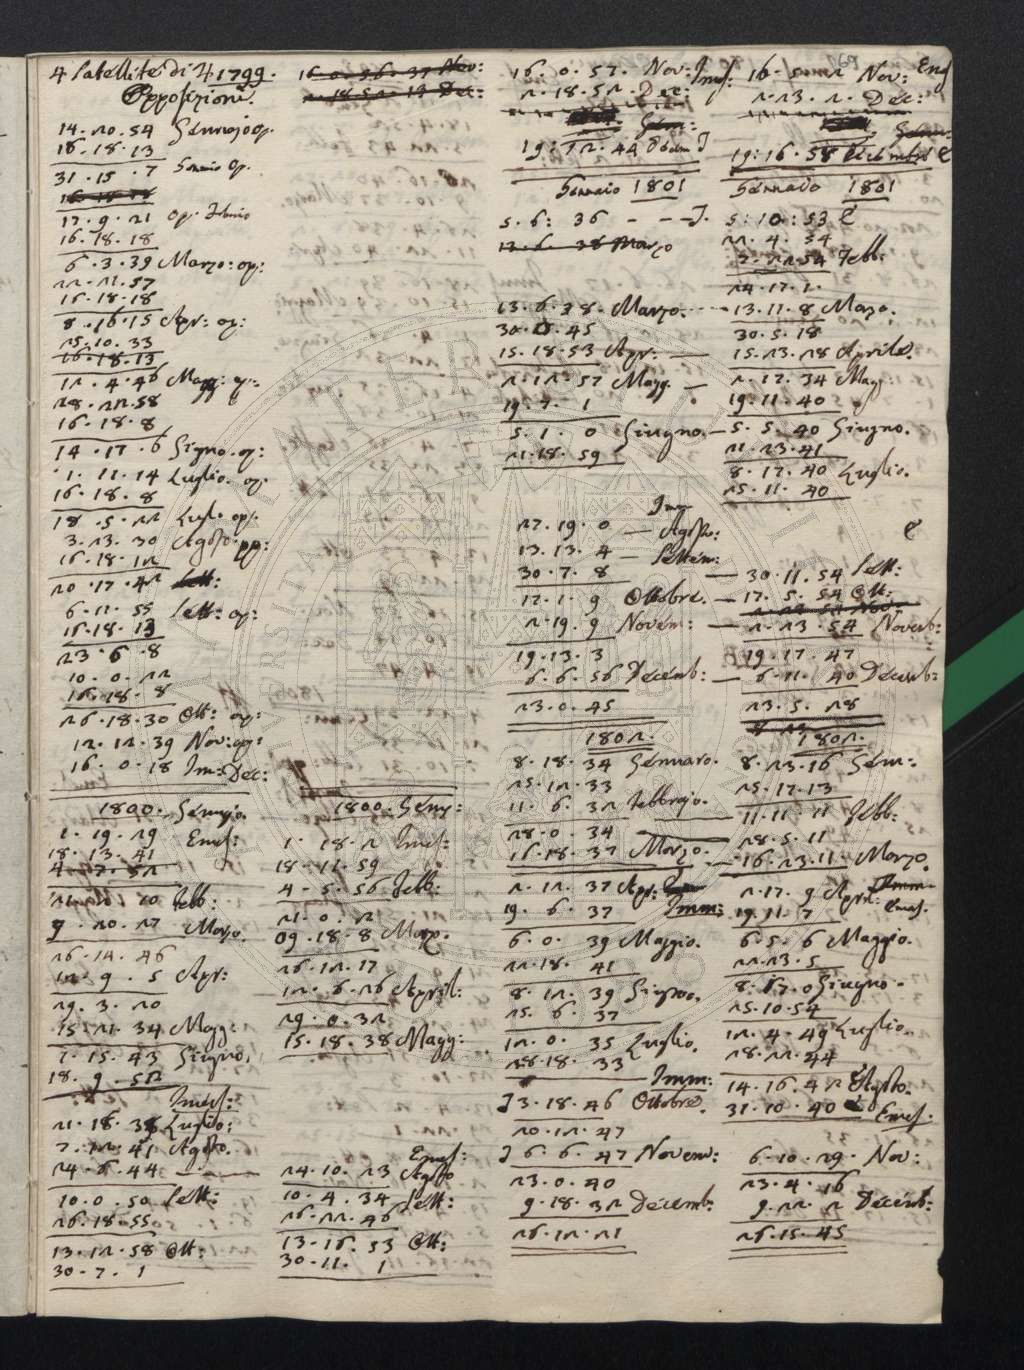 4 Satellite di ♃ 1799.
Opposizioni.
14. 20. 54 Gennajo op.
16. 18. 13
31. 15. 7 Gennaio op.
16. 18. 18
17. 9. 21 op. Febraio
16. 18. 18
6. 3. 39 Marzo: op:
22. 21. 57
16. 18. 18
8. 16. 15 Apr: op:
25. 10. 33
16. 18. 13
12. 4. 46 Magg: op:
28. 22. 58
16. 18. 8
14. 17. 6 Giugno. op:
1. 11. 14 Luglio. op.
16. 18. 8
18. 5. 22 Lugl. op:
3. 23. 30 Agosto. op:
16. 18. 12
20. 17. 42
6. 11. 55 Sett: op:
16. 18. 13
23. 6. 8
10. 0. 22
16. 18. 8
26. 18. 30 Ott: op:
12. 12. 39 Nov: op:
16. 0. 18 Im: Dec:
1800. Gennajo.
1. 19. 29 Emes:
18. 13. 41
4. 7. 52
21. 2. 20 Febb:
9. 20. 27 Marzo.
26. 14. 46
12. 9. 5 Apr:
29. 3. 20
15. 21. 34 Magg:
1. 15. 43 Giugno.
18. 9. 52
Imers:
21. 18. 38 Luglio:
7. 12. 41 Agosto.
24. 6. 44
10. 0. 50 Sett:
26. 18. 55
13. 12. 58 Ott:
30. 7. 1
16. 0. 56. 37 Nov:
2. 18. 52. 13 Dec:
1800. Genn:
1. 18. 2 Imes:
18. 11. 59
4. 5. 56 Febb:
21. 0. 2
09. 18. 8 Marzo.
26. 12. 17
12. 6. 26 April:
29. 0. 32
15. 18. 38 Magg:
Emes:
24. 10. 23 Agosto
10. 4. 34 Sett:
26. 22. 46
13. 16. 53 Ott:
30. 11. 1
16. 0. 57. Nov: Ims:
2. 18. 52. Dec:
Genn:
19: 12. 44
Gennaio 1801
5. 6: 36 - - - I.
13. 6. 38 Marzo
13. 6. 38. Marzo.
30. 0. 45
15. 18. 53 Apr:
2. 12. 57 Magg.
19. 7. 1
5. 1. 0 Giugno.
21. 18. 59
Imm
27. 19. 0 Agosto:
13. 13. 4 Settem:
30. 7. 8
17. 1. 9 Ottobre.
2. 19. 9 Novem:
19. 13. 3
6. 6. 56 Decemb:
23. 0. 45
1802.
8. 18. 34 Gennaro.
25. 12. 33
11. 6. 32 Febbrajo.
28. 0. 34
16. 18. 37 Marzo.
2. 12. 37 Apr:
19. 6. 37 Imm:
6. 0. 39 Maggio.
22. 18. 41
8. 12. 39 Giugno.
25. 6. 37
12. 0. 35 Luglio.
28. 18. 33
Imm:
I 3. 18. 46 Ottobre.
20. 12. 47
I 6. 6. 47 Novem:
23. 0. 40
9. 18. 32 Decemb:
26. 12. 21
16. 5. 2 Nov: Ems
2. 23. 2. Dec:
Genn:
19: 16. 58 Decembre E
Gennaio 1801
5: 10: 53 E
22. 4. 34
7. 22. 54 Febb:
24. 17. 1.
13. 11. 8 Marzo.
30. 5. 18
15. 23. 28 Aprile.
2. 17. 34 Magg
19. 11. 40
5. 5. 40 Giugno.
21. 23. 41
8. 17. 40 Luglio.
25. 11. 40
E
30. 11. 54 Sett:
17. 5. 54 Ott:
2. 23. 54 Nov.
2. 23. 54 Novemb:
19. 17. 47
6. 11. 40 Decemb:
23. 5. 28
1802.
8. 23. 16 Genn:
25. 17. 13
11. 11. 11 Febb:
28. 5. 11
16. 23. 11. Marzo.
2. 17. 9 Apr: Emes.
19. 11. 7
6. 5. 6 Maggio.
22. 23. 5
8. 17. 0 Giugno.
25. 10. 54
12. 4. 49 Luglio.
28. 22. 44
14. 16. 42 Agosto.
31. 10. 40 Emes.
6. 10. 29. Nov:
23. 4. 16
9. 22. 2 Decemb:
26. 15. 45